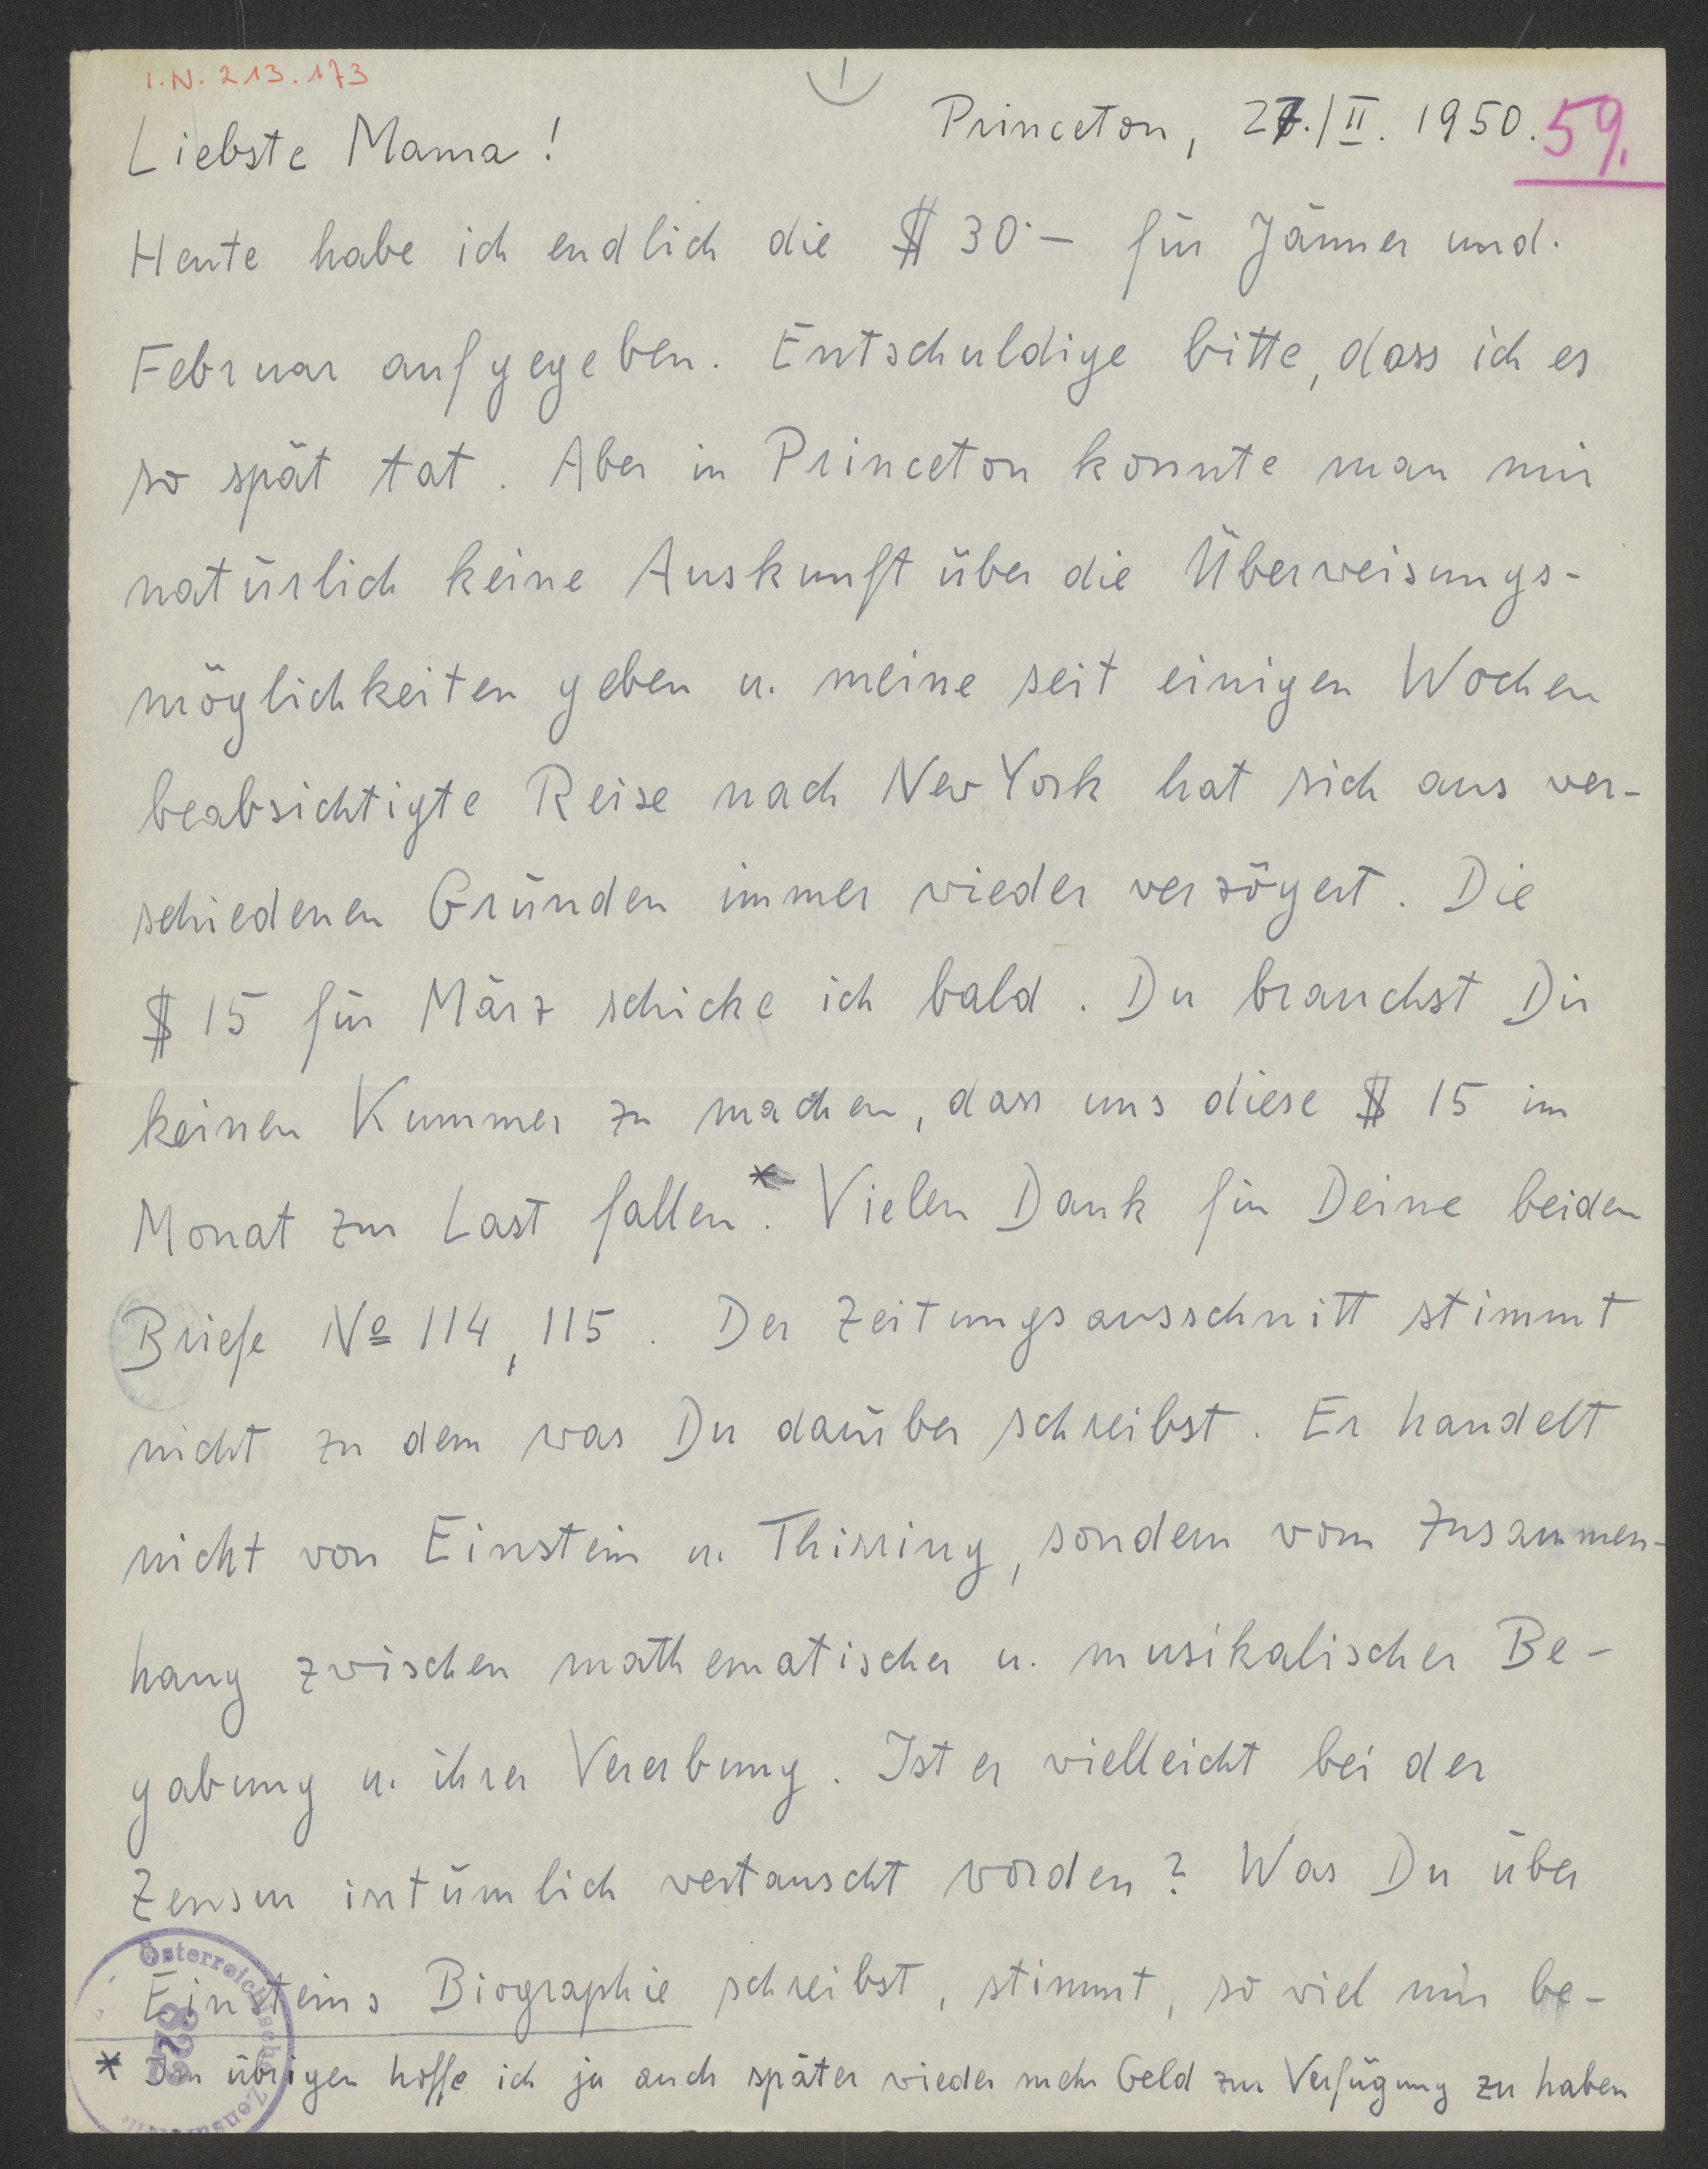 I.N. 213.173
1
Princeton, 27./II. 1950. 59.
Liebste Mama!
Heute habe ich endlich die $ 30·– für Jänner und
Februar aufgegeben. Entschuldige bitte, dass ich es
so spät tat. Aber in Princeton konnte man mir
natürlich keine Auskunft über die Überweisungs-
möglichkeiten geben u. meine seit einigen Wochen
beabsichtigte Reise nach New York hat sich aus ver-
schiedenen Gründen immer wieder verzögert. Die
$ 15 für März schicke ich bald. Du brauchst Dir
keinen Kummer zu machen, dass uns diese $ 15 im
Monat zur Last fallen.* Vielen Dank für Deine beiden
Briefe No 114, 115. Der Zeitungsausschnitt stimmt
nicht zu dem was Du darüber schreibst. Er handelt
nicht von Einstein u. Thirring, sondern vom Zusammen-
hang zwischen mathematischer u. musikalischer Be-
gabung u. ihrer Vererbung. Ist er vielleicht bei der
Zensur irrtümlich vertauscht worden? Was Du über
Einsteins Biographie schreibst, stimmt, so viel mir be-
* Im übrigen hoffe ich ja auch später wieder mehr Geld zur Verfügung zu haben
Österreichische Zensurstelle
328